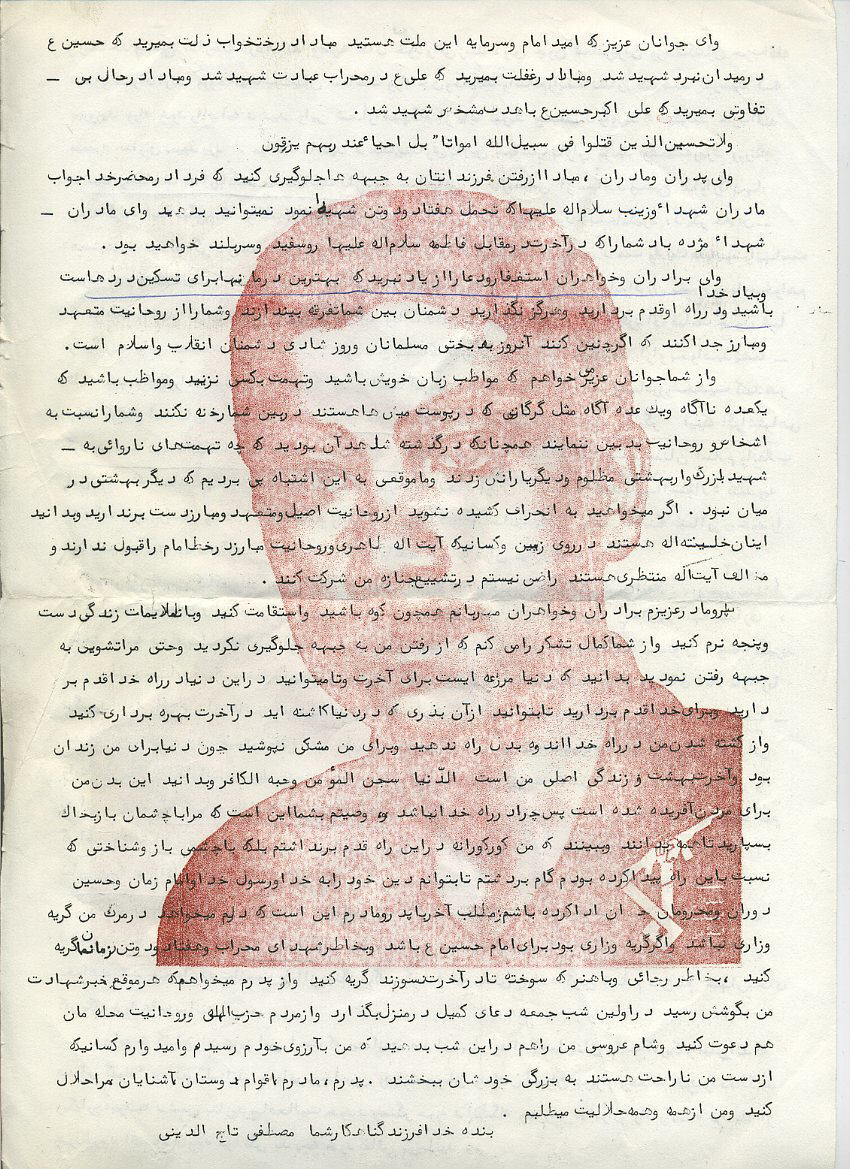 وای جوانان عزیز که امید امام وسرمایه این ملت هستید مباد ادررختخواب ذلت بمیرید که حسین ع
درمیدان نبرد شهید شد ومبادا درغفلت بمیرید که علی ع درمحراب عبادت شهید شد ومبادا درحال بی –
تفاوتی بمیرید که علی اکبرحسین ع باهدف مشخص شهید شد .
ولاتحسبن الذین قتلوا فی سبیل الله امواتا" بل احیاءعند ربهم یرزقون
وای پدران ومادران ، مبادا ازرفتن فرزندانتان به جبهه ها جلوگیری کنید که فردا درمحضرخدا جواب
مادران شهداءوزینب سلام اله علیها که تحمل هفتادودوتن شهید را نمود نمیتوانید بدهید وای مادران –
شهداء مژده بادشماراکه درآخرت درمقابل فاطمه سلام اله علیها روسفید وسربلند خواهید بود .
وای برادران وخواهران استغفارودعارا ازیاد نبرید که بهترین درمانها برای تسکین دردهاست وبیاد خدا
باشید ودر راه اوقدم بردارید وهرگز نگذارید دشمنان بین شماتفرقه بیندازند وشمارا از روحانیت متعهد
ومبارز جداکنند که اگرچنین کنند آنروز بدبختی مسلمانان وروز شادی دشمنان انقلاب واسلام است.
واز شماجوانان عزیز می خواهم که مواظب زبان خویش باشید وتهمت بکسی نزنید ومواظب باشید که
یکعده ناآگاه ویک عده آگاه مثل گرگانی که درپوست میش هاهستند دربین شمارخنه نکنند وشمارانسبت به
اشخاص و روحانیت بدبین ننمایند همچنانکه درگذشته شاهد آن بودید که چه تهمتهای ناروائی به –
شهید بزرگواربهشتی مظلوم ودیگریارانش زدند وماموقعی به این اشتباه پی بردیم که دیگر بهشتی در
میان نبود . اگر میخواهید به انحراف کشیده نشوید ازروحانیت اصیل ومتعهد ومبارزدست برندارید وبدانید
اینان خلیفه اله هستند درروی زمین وکسانیکه آیت اله طاهری وروحانیت مبارزدرخط امام راقبول ندارند و
مخالف آیت اله منتظری هستند راضی نیستم درتشییع جنازه من شرکت کنند .
پدرومادرعزیزم برادران وخواهران مهربانم همچون کوه باشید واستقامت کنید وباناملایمات زندگی دست
وپنجه نرم کنید واز شماکمال تشکر راض کنم که از رفتن من به جبهه جلوگیری نکردید وحتی مراتشویق به
جبهه رفتن نمودید بدانید که دنیا مزرعه ایست برای آخرت وتامیتوانید دراین دنیا درراه خداقدم بر
دارید وبرای خدا قدم بردارید تابتوانید ازآن بذری که دردنیا کاشته اید درآخرت بهره برداری کنید
واز کشته شدن من درراه خدا اندوه بدل راه ندهید وبرای من مشکی نپوشید چون دنیابرای من زندان
بود وآخرت بهشت و زندگی اصلی من است الدّنیا سجن المؤمن وجبه الکافر وبدانید این بدن من
برای مردن آفریده شده است پس چرا درراه خدا نباشد و وصیتم بشمااین است که مراباچشمان بازبخاک
بسپارید تاهمه بدانند وببینند که من کورکورانه دراین راه قدم برنداشتم بلکه باچشمی باز وشناختی که
نسبت باین راه پیداکرده بودم گام برداشتم تابتوانم دین خود رابه خدا ورسول خدا وامام زمان وحسین
دوران ومحرومان اداکرده باشم مطلب آخرباپدرومادرم این است که دلم میخواهد درمرگ من گریه
وزاری نباشد واگرگریه وزاری بود برای امام حسین ع باشد وبخاطرشهدای محراب وهفتادودوتن زمانمان گریه
کنید ، بخاطر رجائی وباهنر که سوخته تادرآخرت نسوزند گریه کنید واز پدرم میخواهم که هرموقع خبرشهادت
من بگوشش رسید دراولین شب جمعه دعای کمیل درمنزل بگذارد وازمردم حزب اللهی وروحانیت محله مان
هم دعوت کنید وشام عروسی من راهم دراین شب بدهید که من بآرزوی خودم رسیدم وامیدوارم کسانیکه
ازدست من ناراحت هستند به بزرگی خودشان ببخشند . پدرم، مادرم، اقوام دوستان آشنایان، مراحلال
کنید ومن ازهمه وهمه حلالیت میطلبم .
بنده خدا فرزندگناهکارشما مصطفی تاج الدینی